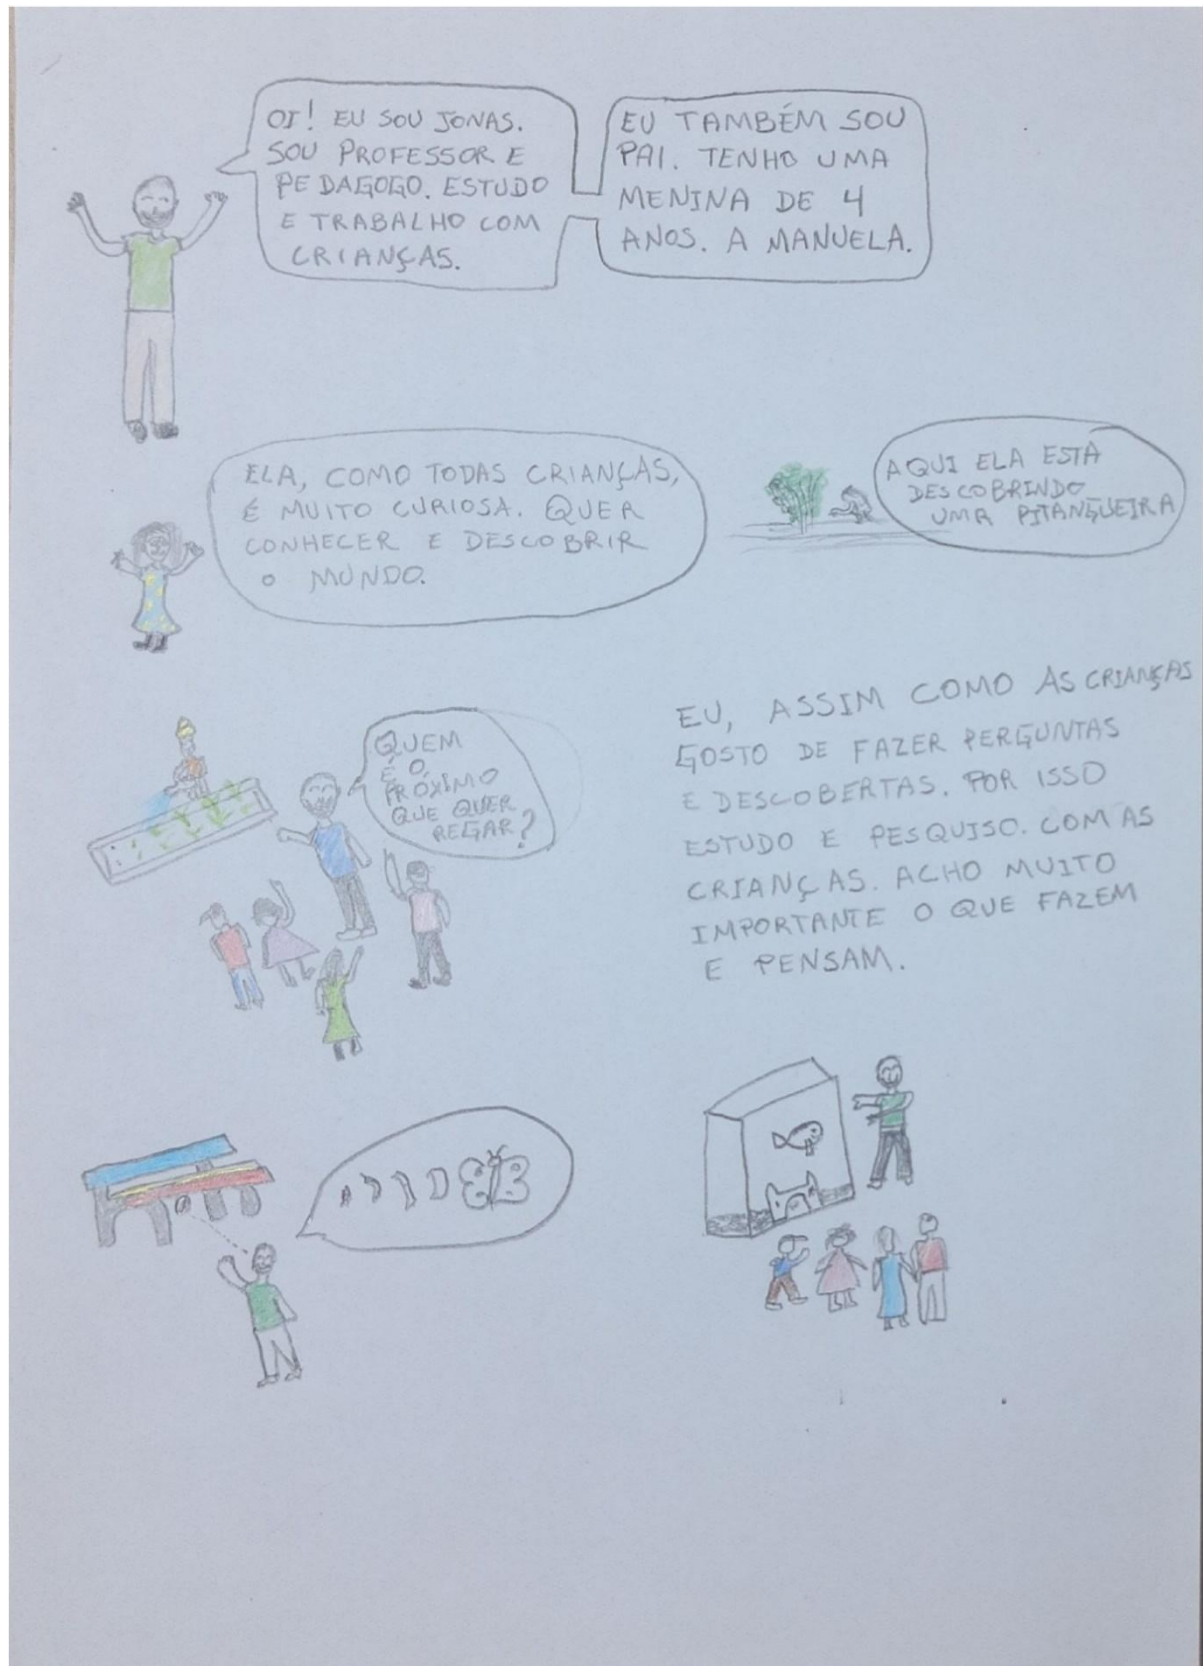 OI! EU SOU JONAS.
SOU PROFESSOR E
PEDAGOGO. ESTUDO
E TRABALHO COM
CRIANÇAS.
EU TAMBÉM SOU
PAI. TENHO UMA
MENINA DE 4
ANOS. A MANUELA.
ELA, COMO TODAS CRIANÇAS,
É MUITO CURIOSA. QUER
CONHECER E DESCOBRIR
O MUNDO.
AQUI ELA ESTÁ
DESCOBRINDO
UMA PITANGUEIRA
QUEM
É O
PRÓXIMO
QUE QUER
REGAR?
EU, ASSIM COMO AS CRIANÇAS
GOSTO DE FAZER PERGUNTAS
E DESCOBERTAS. POR ISSO
ESTUDO E PESQUISO. COM AS
CRIANÇAS. ACHO MUITO
IMPORTANTE O QUE FAZEM
E PENSAM.